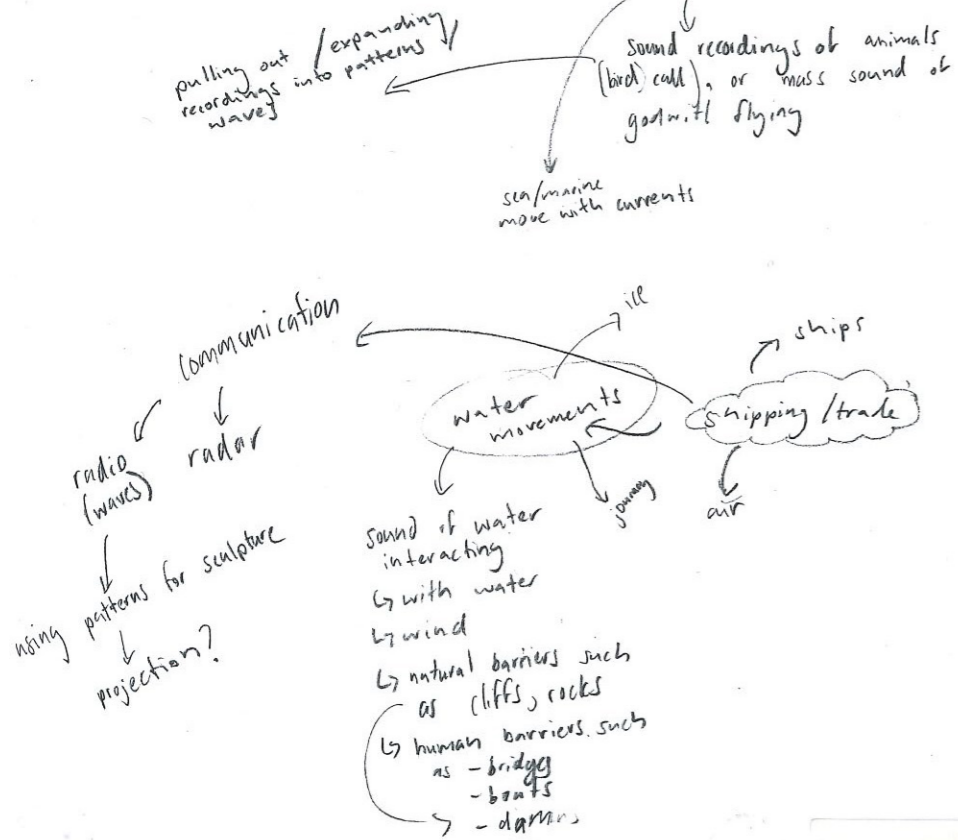 pulling out /expanding
recordings into patterns
waves
sound recordings of animals
(bird) call), or mass sound of
godwit flying
sea/marine
move with currents
communication
radio
(waves)
radar
using patterns for sculpture
projection?
water
movements
ice
journey
shipping/trade
ships
air
sound of water
interacting
↳ with water
↳ wind
↳ natural barriers such
as cliffs, rocks
↳ human barriers such
as - bridges
- boats
- damns